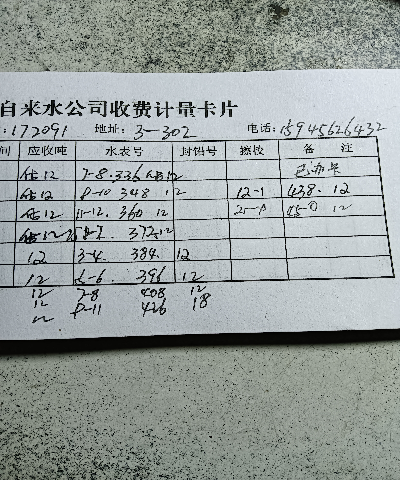 自来水公司收费计量卡片
: 172091 地址: 3-302 电话: 15945626432
间 应收吨 水表号 封铅号 擦校 备 注
估12 7-8. 336 估12 已办卡
估12 9-10 348 12 12-1 438. 12
估12 11-12. 360 12
估12 372. 12
12 3-4. 384. 12
12 5-6. 396 12
12 7-8 408 12
12 9-11 426 18
12